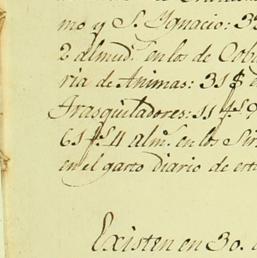 mo y S. Ygnacio: 35
2 almud. en los de Cob
ria de Animas: 31 f e
Trasquiladores: 11 f.s 9
61 f.s 4 alm.s en los Sir
en el gasto diario de est
Existen en 30.